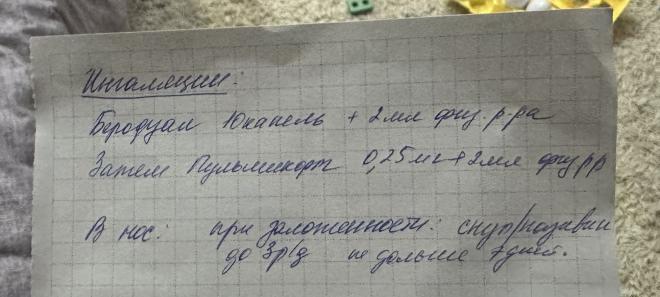 Ингаляции:
Беродуал 10капель + 2мл физ. р-ра
Затем Пульмикорт 0,25мг + 2мл физ рр
В нос: при заложенности: снуп/називин
до 3р/д не дольше 7 дней.